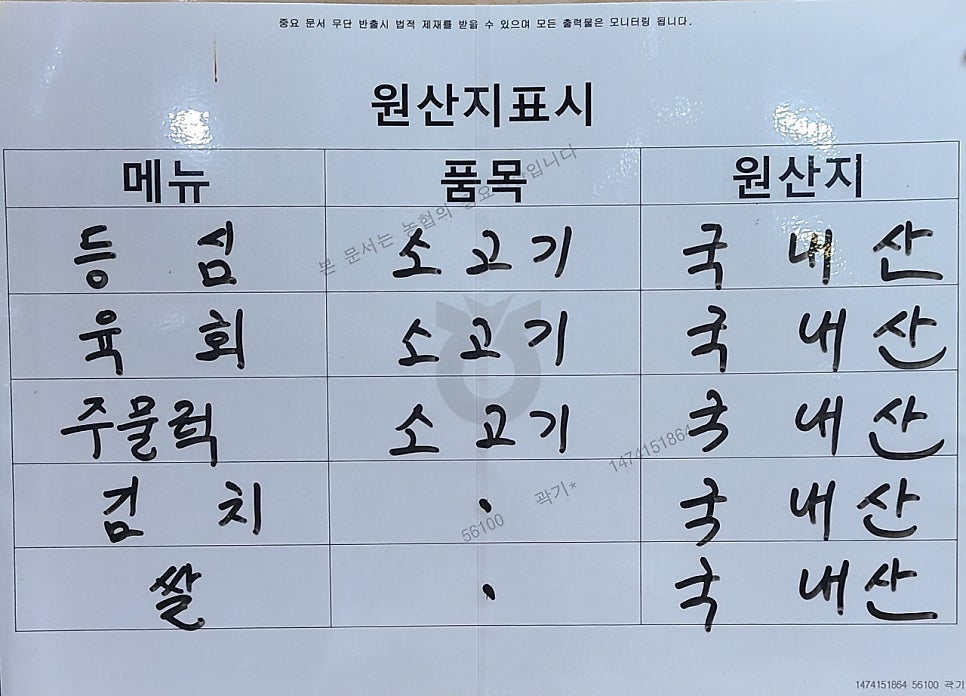 중요 문서 무단 반출시 법적 제재를 받을 수 있으며 모든 출력물은 모니터링 됩니다.
원산지표시
메뉴 품목 원산지
등 심 소고기 국 내 산
육 회 소고기 국 내 산
주물럭 소고기 국 내 산
김 치 · 국 내 산
쌀 · 국 내 산
본 문서는 농협의 중요 입니다
1474151864
56100 곽기*
1474151864 56100 곽기